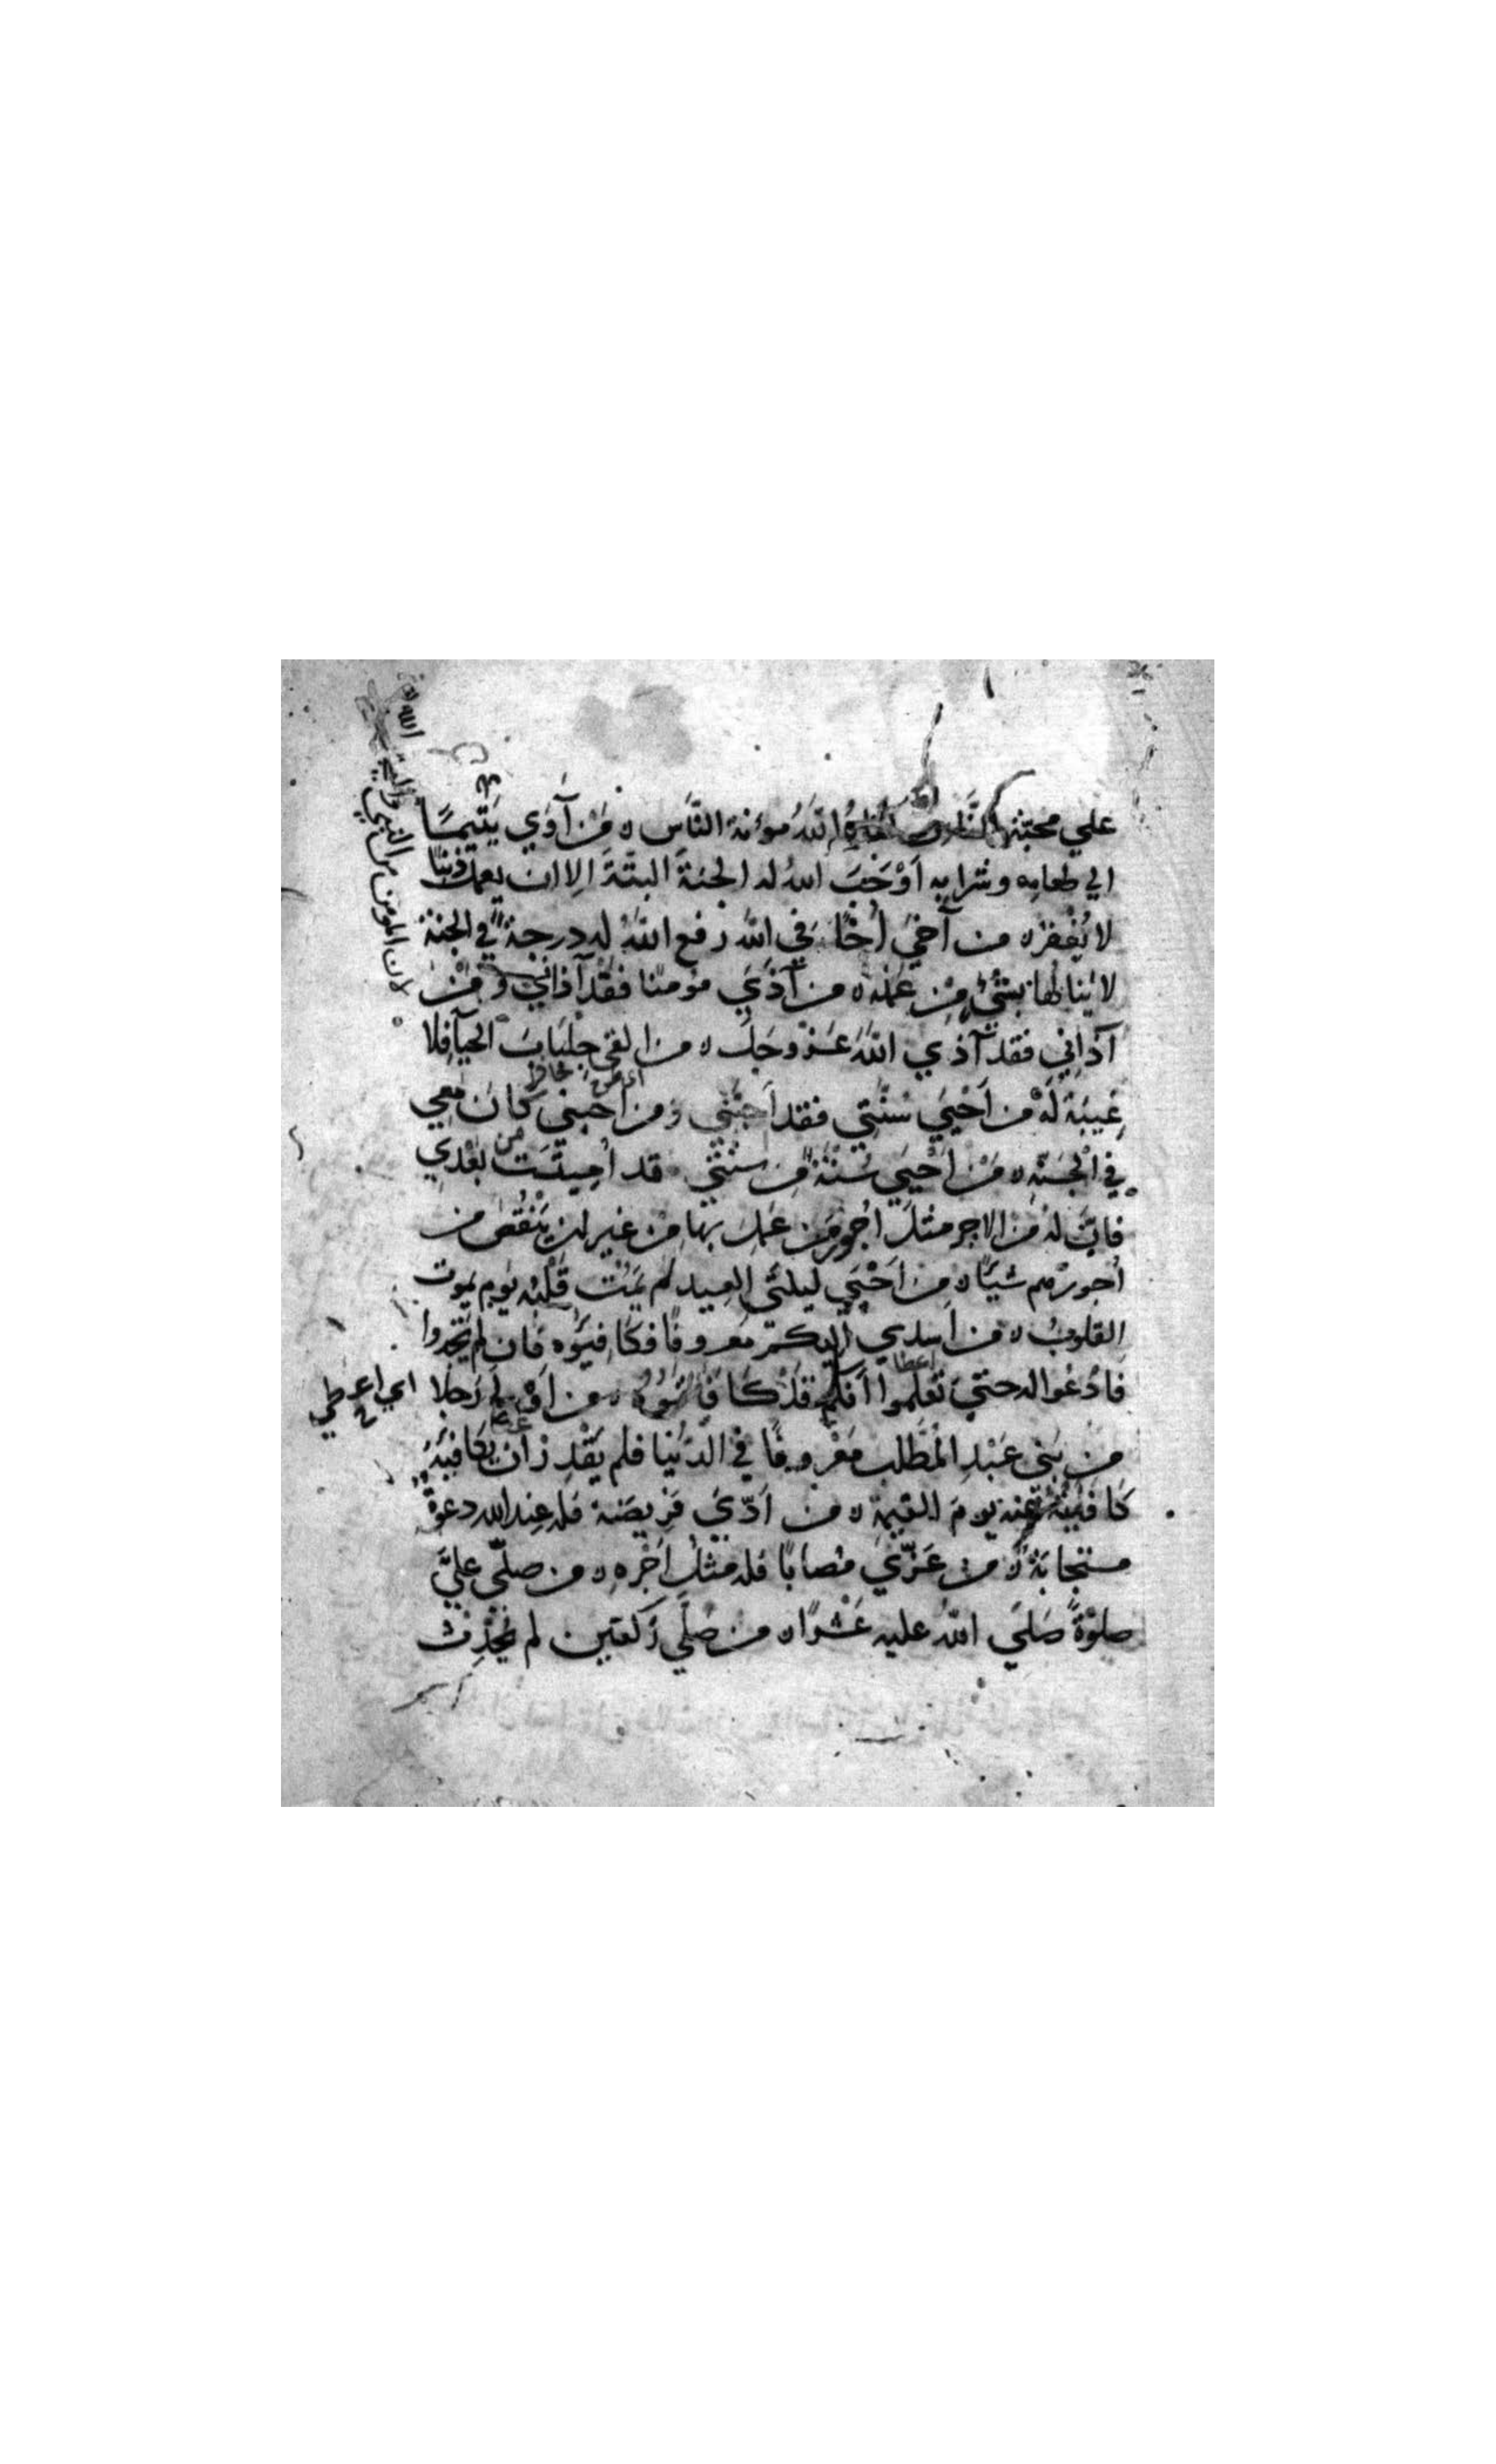 علي محبّة النَّاس كفاهُ اللّهُ مؤنة النَّاسِ ه مَنْ آوَي يَتيمًا
الي طعامِه وشرابِه اَوْجَبَ اللهُ له الجنةَ البتّةَ الا ان يعمل ذنبًا
لا يُغْفَرُ ه من آخَيَ اُخًا فِي اللّه رفع اللّهُ له درجةً في الجنة
لا ينالُها بِشَيْءٍ مِنْ عَمَله ه من آذَيَ مؤمنًا فقَدْ آذاني وَمَنْ
آذانِي فقد آذي اللّهَ عَزَّ وجَلَّ ه من القي جِلْبَابَ الحيآ فلا
غِيبَةَ لَهُ من اَحْيَي سُنَّتِي فقد اَحبَّنِي ومن احبني كان معِي
فِي الْجَنَّةِ ه مَنْ اَحْيَي سُنَّةً مِن سنتي قد اُمِيتَتْ من بَعْدِي
فاِنَّ لهُ مِنَ الاجرِ مثلَ اُجورِ مَن عَمِلَ بها مِنْ غيرِ ان يَنْقُصَ من
اُجورِهم شيئًا ه من اَحْيَي ليلتَيِ العيدِ لم يَمُتْ قَلْبُه يَوم يموت
القلوبُ ه من اَسدي اليكم مَعروفًا فكافِئوُه فان لم تجدوا
فادْعُوا له حتّي تَعْلَموا اَنكم قَدْ كافأتموُهُ ه من اَوْلي رَجلًا
مِن بَنِي عَبْدِ المُطَّلبِ مَعْروفًا فِي الدّنيا فلم يَقْدِرْ ان يكافِئَهُ
كافَيْتُهُ عنه يومَ القيمةِ ه من اَدَّيَ فَرِيضَةً فله عِند الله دعوةٌ
مستجابَةٌ ه من عَزّيَ مُصابًا فله مثلُ اَجْرِهِ ه من صلّي عليَّ
صلوةً صَلّيَ اللّهُ عليه عَشْرًا ه من صَلّي رَكعتين لم يُحْدِث
لان المومن من النبي
اي اعطي